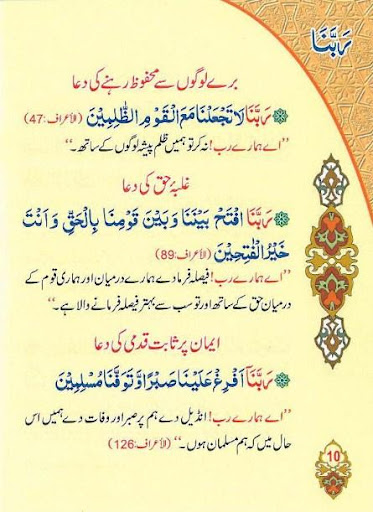 رَبَّنَا
برے لوگوں سے محفوظ رہنے کی دعا
رَبَّنَا لَا تَجْعَلْنَا مَعَ الْقَوْمِ الظّٰلِمِيْنَ (الأعراف:47)
”اے ہمارے رب! نہ کر تو ہمیں ظلم پیشہ لوگوں کے ساتھ۔“
غلبۂ حق کی دعا
رَبَّنَا افْتَحْ بَيْنَنَا وَ بَيْنَ قَوْمِنَا بِالْحَقِّ وَ اَنْتَ
خَيْرُ الْفٰتِحِيْنَ (الأعراف:89)
”اے ہمارے رب! فیصلہ فرما دے ہمارے درمیان اور ہماری قوم کے
درمیان حق کے ساتھ اور تو سب سے بہتر فیصلہ فرمانے والا ہے۔“
ایمان پر ثابت قدمی کی دعا
رَبَّنَآ اَفْرِغْ عَلَيْنَا صَبْرًا وَّ تَوَفَّنَا مُسْلِمِيْنَ
”اے ہمارے رب! انڈیل دے ہم پر صبر اور وفات دے ہمیں اس
حال میں کہ ہم مسلمان ہوں۔“ (الأعراف:126)
10